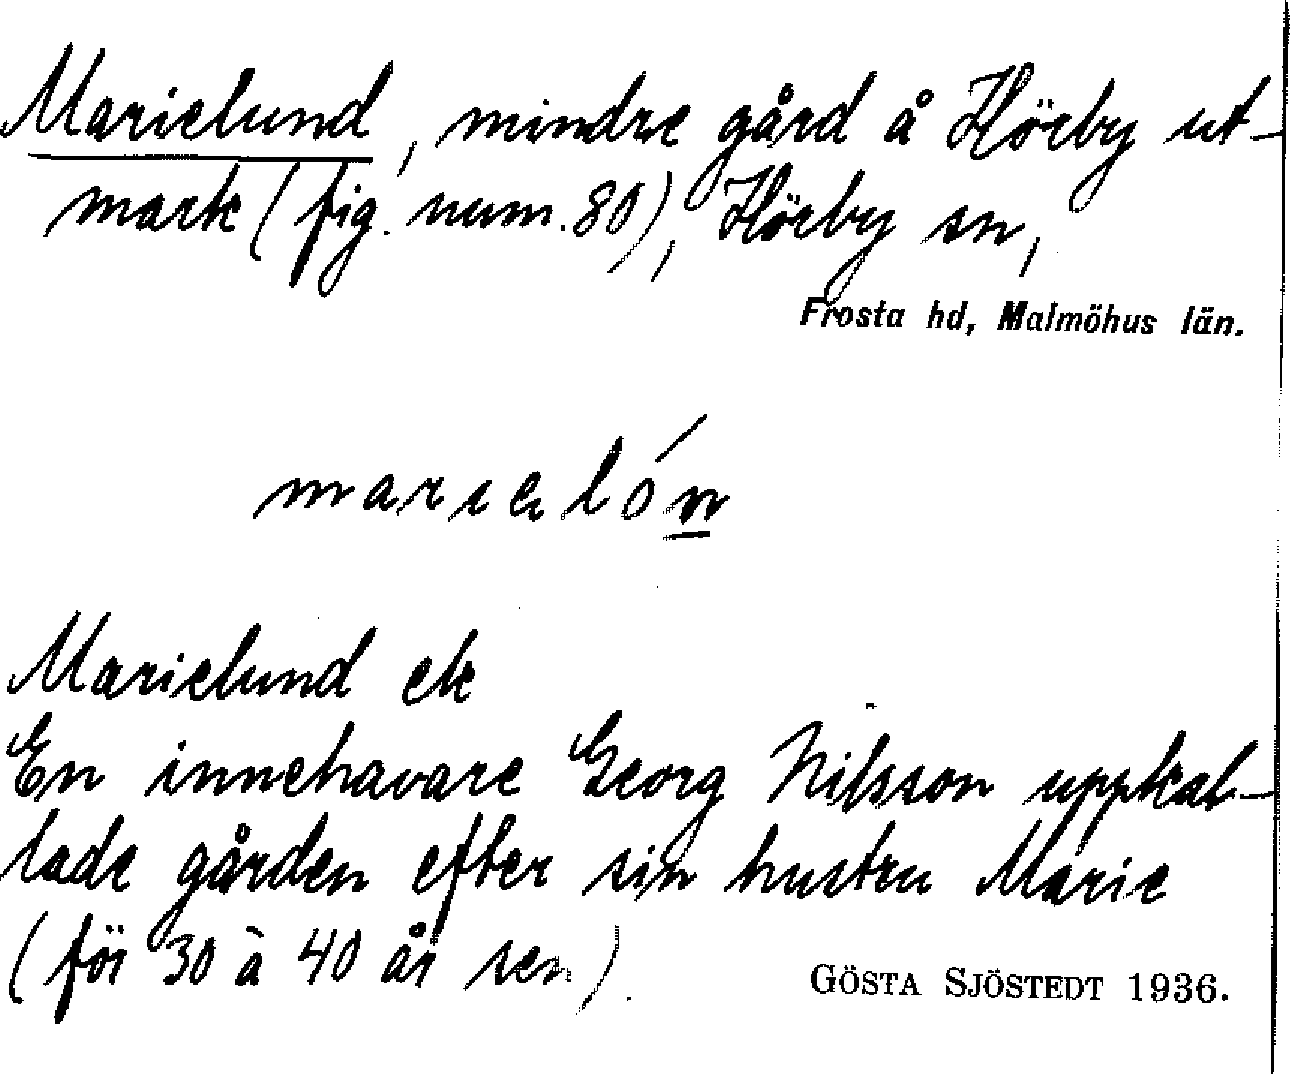 Marielund, mindre gård å Hörby ut-
mark (fig. num. 80), Hörby sn,
Frosta hd, Malmöhus län.
marıelón
Marielund ek
En innehavare Georg Nilsson uppkal-
lade gården efter sin hustru Marie
(för 30 à 40 år sen).
GÖSTA SJÖSTEDT 1936.